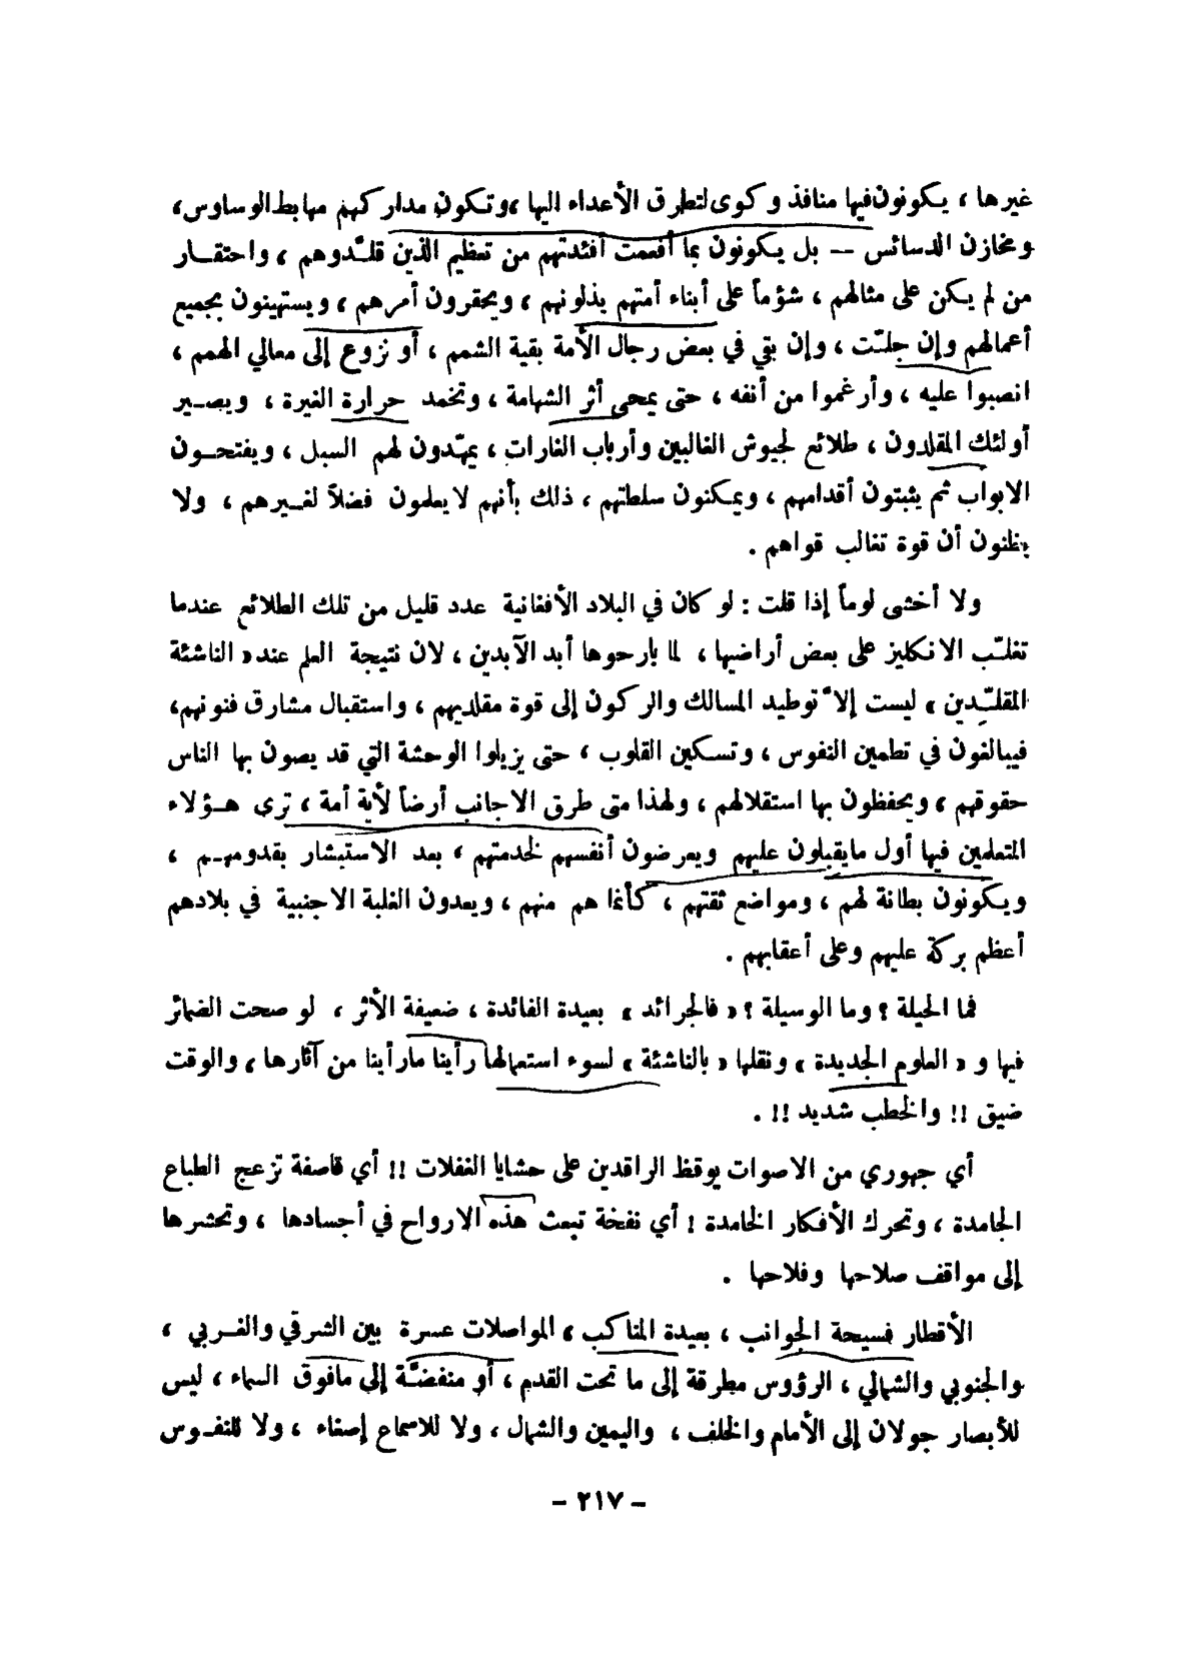 غيرها ، يكونون فيها منافذ وكوى لتطرق الأعداء اليها ، وتكون مداركهم مهابط الوساوس،
ومخازن الدسائس — بل يكونون بما أفعمت أفئدتهم من تعظيم الذين قلّدوهم ، واحتقـار
من لم يكن على مثالهم ، شؤماً على أبناء أمتهم يذلونهم ، ويحقرون أمرهم ، ويستهينون بجميع
أعمالهم وإن جلّت ، وإن بقي في بعض رجال الأمة بقية الشمم ، أو نزوع إلى معالي الهمم ،
انصبوا عليه ، وأرغموا من أنفه ، حتى يمحى أثر الشهامة ، وتخمد حرارة الغيرة ، ويصـير
أولئك المقلدون ، طلائع لجيوش الغالبين وأرباب الغارات ، يمهّدون لهم السبل ، ويفتحـون
الابواب ثم يثبتون أقدامهم ، ويمكنون سلطتهم ، ذلك بأنهم لا يعلمون فضلاً لغـيرهم ، ولا
يظنون أن قوة تغالب قواهم .
ولا أخشى لوماً إذا قلت : لو كان في البلاد الأفغانية عدد قليل من تلك الطلائع عندما
تغلّب الانكليز على بعض أراضيها ، لما بارحوها أبد الآبدين ، لان نتيجة العلم عند « الناشئة
المقلّدين » ليست إلاّ توطيد المسالك والركون إلى قوة مقلديهم ، واستقبال مشارق فنونهم،
فيبالغون في تطمين النفوس ، وتسكين القلوب ، حتى يزيلوا الوحشة التي قد يصون بها الناس
حقوقهم ، ويحفظون بها استقلالهم ، ولهذا متى طرق الاجانب أرضاً لأية أمة ، ترى هـؤلاء
المتعلمين فيها أول مايقبلون عليهم ويعرضون أنفسهم لخدمتهم ، بعد الاستبشار بقدومهـم ،
ويكونون بطانة لهم ، ومواضع ثقتهم ، كأنما هم منهم ، ويعدون الغلبة الاجنبية في بلادهم
أعظم بركة عليهم وعلى أعقابهم .
فما الحيلة ؟ وما الوسيلة ؟ « فالجرائد » بعيدة الفائدة ، ضعيفة الأثر ، لو صحت الضمائر
فيها و « العلوم الجديدة » ونقلها « بالناشئة » لسوء استعمالها رأينا مارأينا من آثارها ، والوقت
ضيق !! والخطب شديد !! .
أي جهوري من الاصوات يوقظ الراقدين على حشايا الغفلات !! أي قاصفة تزعج الطباع
الجامدة ، وتحرك الأفكار الخامدة ! أي نفخة تبعث هذه الارواح في أجسادها ، وتحشرها
إلى مواقف صلاحها وفلاحها .
الأقطار فسيحة الجوانب ، بعيدة المناكب ، المواصلات عسرة بين الشرقي والغـربي ،
والجنوبي والشمالي ، الرؤوس مطرقة إلى ما تحت القدم ، أو منغضّة إلى مافوق السماء ، ليس
للأبصار جولان إلى الأمام والخلف ، واليمين والشمال ، ولا للاسماع إصغاء ، ولا للنفـوس
– ٢١٧ –